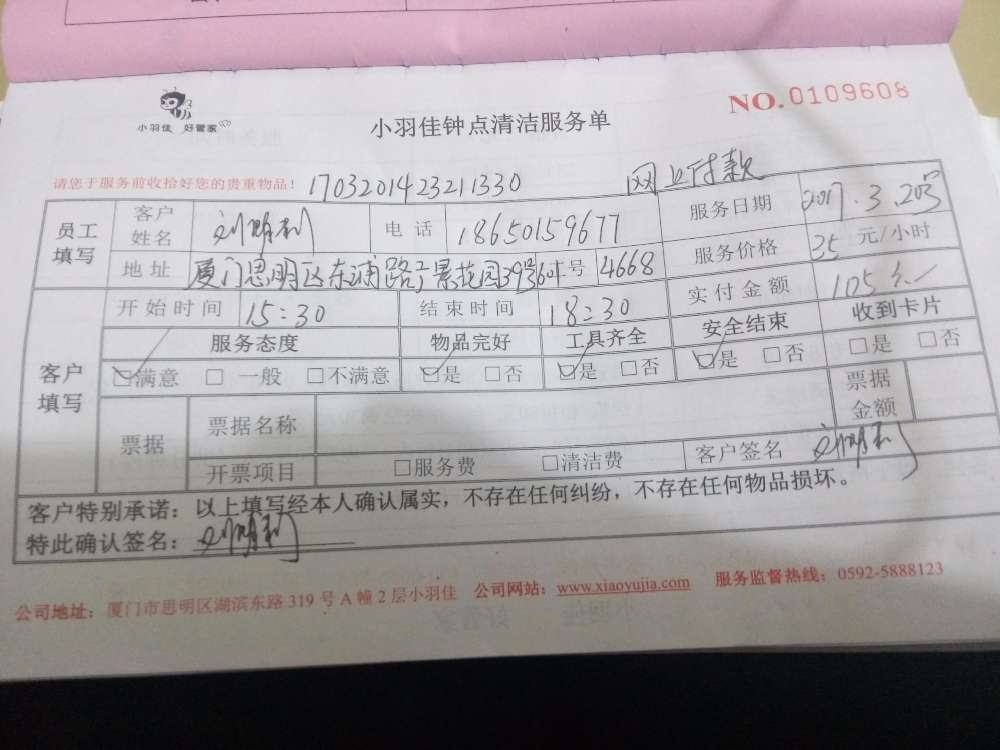 小羽佳 好管家
小羽佳钟点清洁服务单
NO.0109608
请您于服务前收拾好您的贵重物品！ 1703201423211330 网上付款
员工填写 客户姓名 刘明利 电话 18650159677 服务日期 2017.3.20号
地址 厦门思明区东浦路 景花园39号601 号 4668 服务价格 35 元/小时
客户填写 开始时间 15:30 结束时间 18:30 实付金额 105元
服务态度 物品完好 工具齐全 安全结束 收到卡片
☑满意 □ 一般 □不满意 ☑是 □否 ☑是 □否 ☑是 □否 □是 □否
票据 票据名称 票据金额
开票项目 □服务费 □清洁费 客户签名 刘明利
客户特别承诺：以上填写经本人确认属实，不存在任何纠纷，不存在任何物品损坏。
特此确认签名：刘明利
公司地址：厦门市思明区湖滨东路 319 号 A 幢 2 层小羽佳 公司网站：www.xiaoyujia.com 服务监督热线：0592-5888123